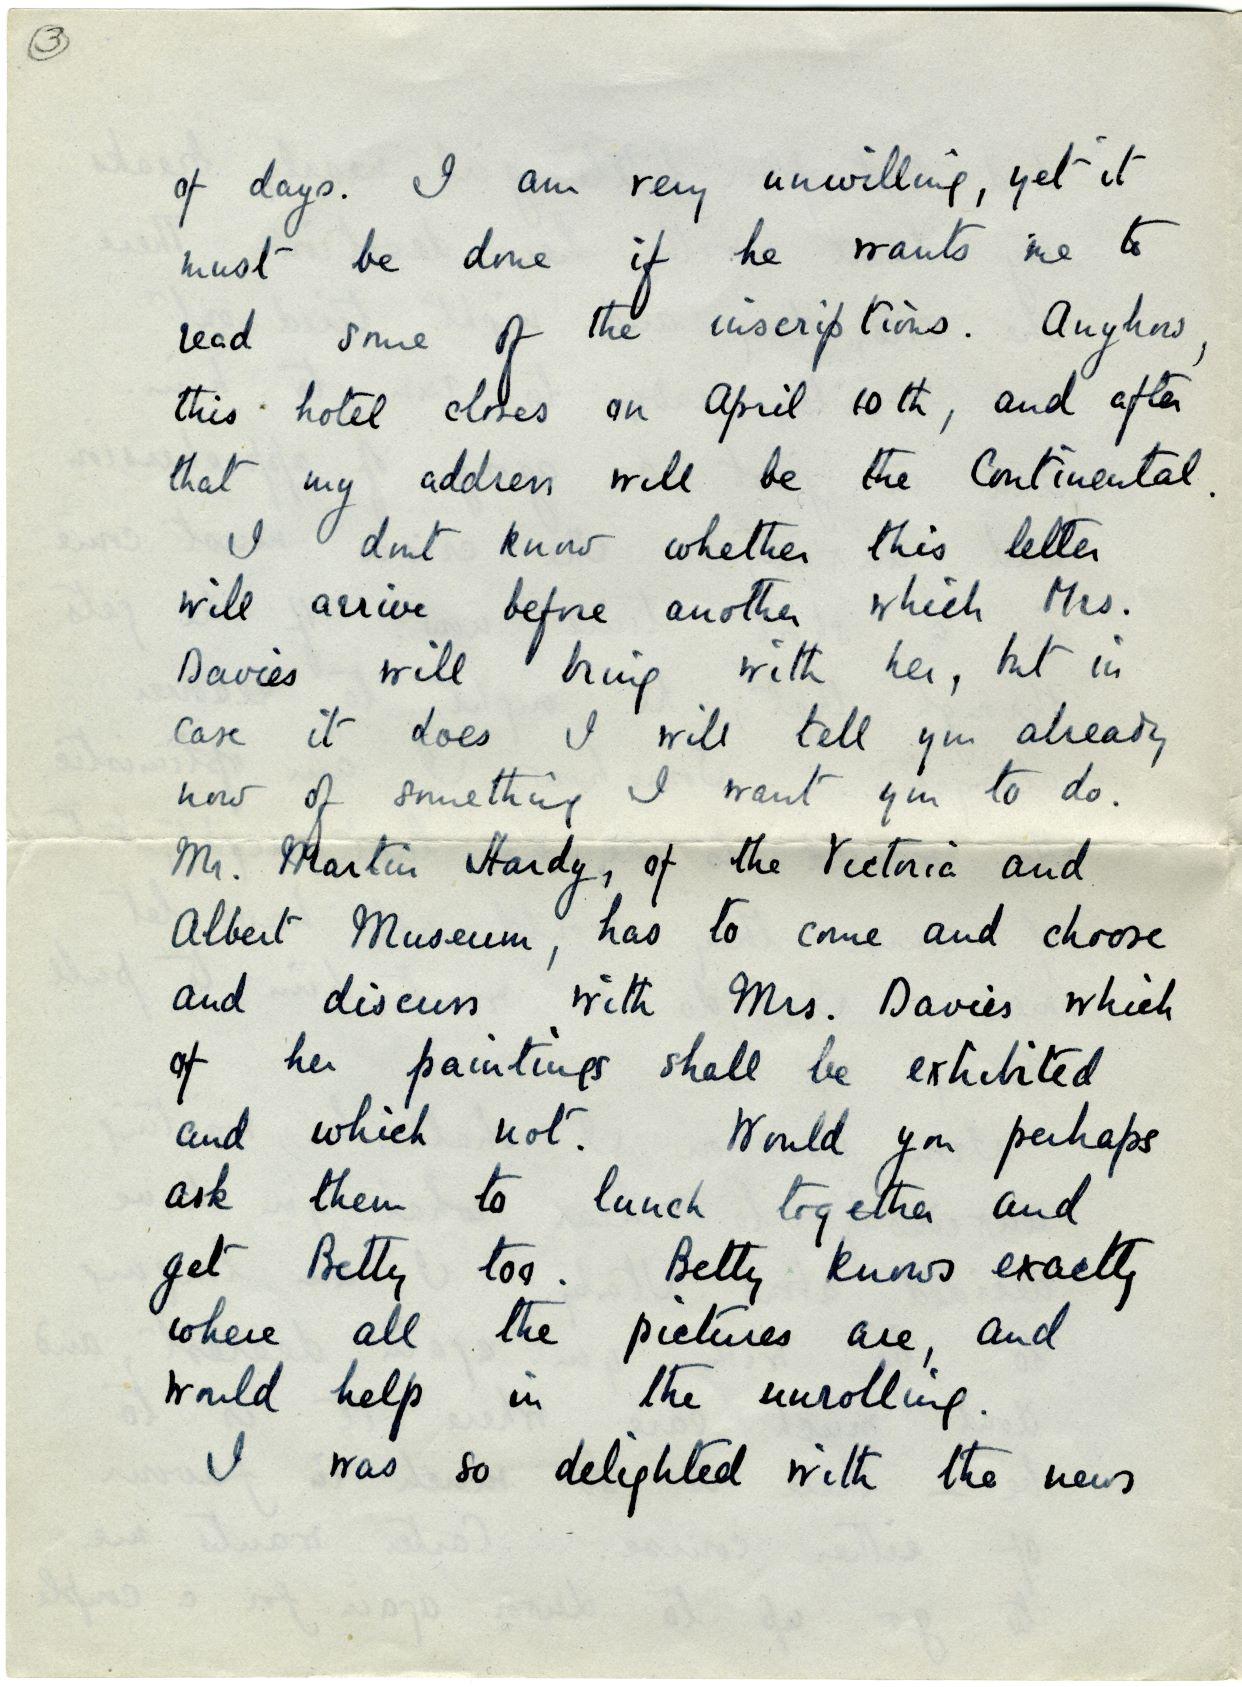 3
of days. I am very unwilling, yet it
must be done if he wants me to
read some of the inscriptions. Anyhow,
this hotel closes on April 10th, and after
that my address will be the Continental.
I dont know whether this letter
will arrive before another which Mrs.
Davies will bring with her, but in
case it does I will tell you already
now of something I want you to do.
Mr. Martin Hardy, of the Victoria and
Albert Museum, has to come and choose
and discuss with Mrs. Davies which
of her paintings shall be exhibited
and which not. Would you perhaps
ask them to lunch together and
get Betty too. Betty knows exactly
where all the pictures are, and
would help in the unrolling.
I was so delighted with the news